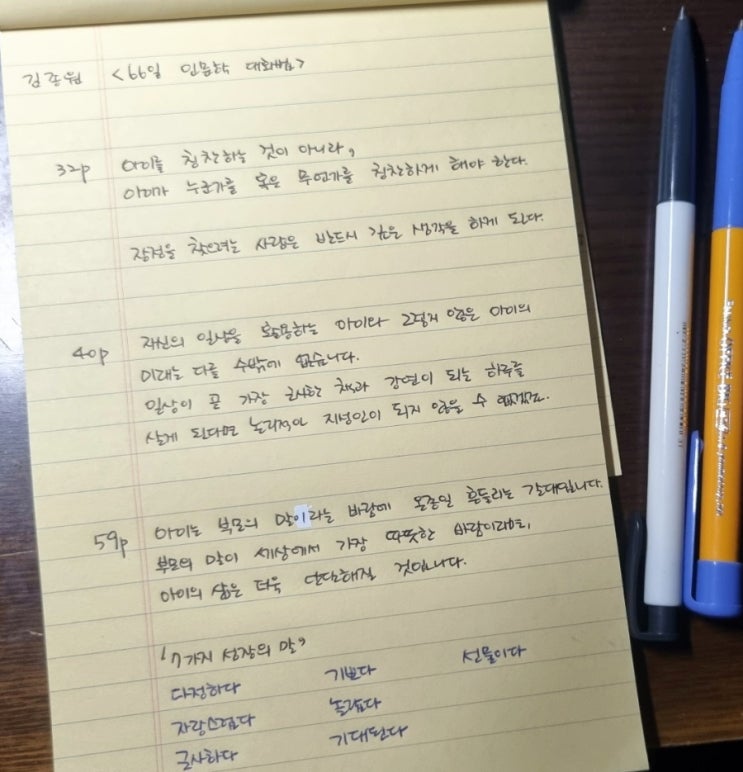 김종원 <66일 인문학 대화법>
32p 아이를 칭찬하는 것이 아니라,
아이가 누군가를 혹은 무언가를 칭찬하게 해야 한다.
장점을 찾으려는 사람은 반드시 깊은 생각을 하게 된다.
40p 자신의 일상을 활용하는 아이와 그렇지 않은 아이의
미래는 다를 수밖에 없습니다.
일상이 곧 가장 근사한 책과 강연이 되는 하루를
살게 된다면 논리적인 지성인이 되지 않을 수 없겠죠.
59p 아이는 부모의 말이라는 바람에 온종일 흔들리는 갈대입니다.
부모의 말이 세상에서 가장 따뜻한 바람이라면,
아이의 삶은 더욱 단단해질 것입니다.
'7가지 성장의 말'
다정하다 기쁘다 선물이다
자랑스럽다 놀랍다
근사하다 기대된다